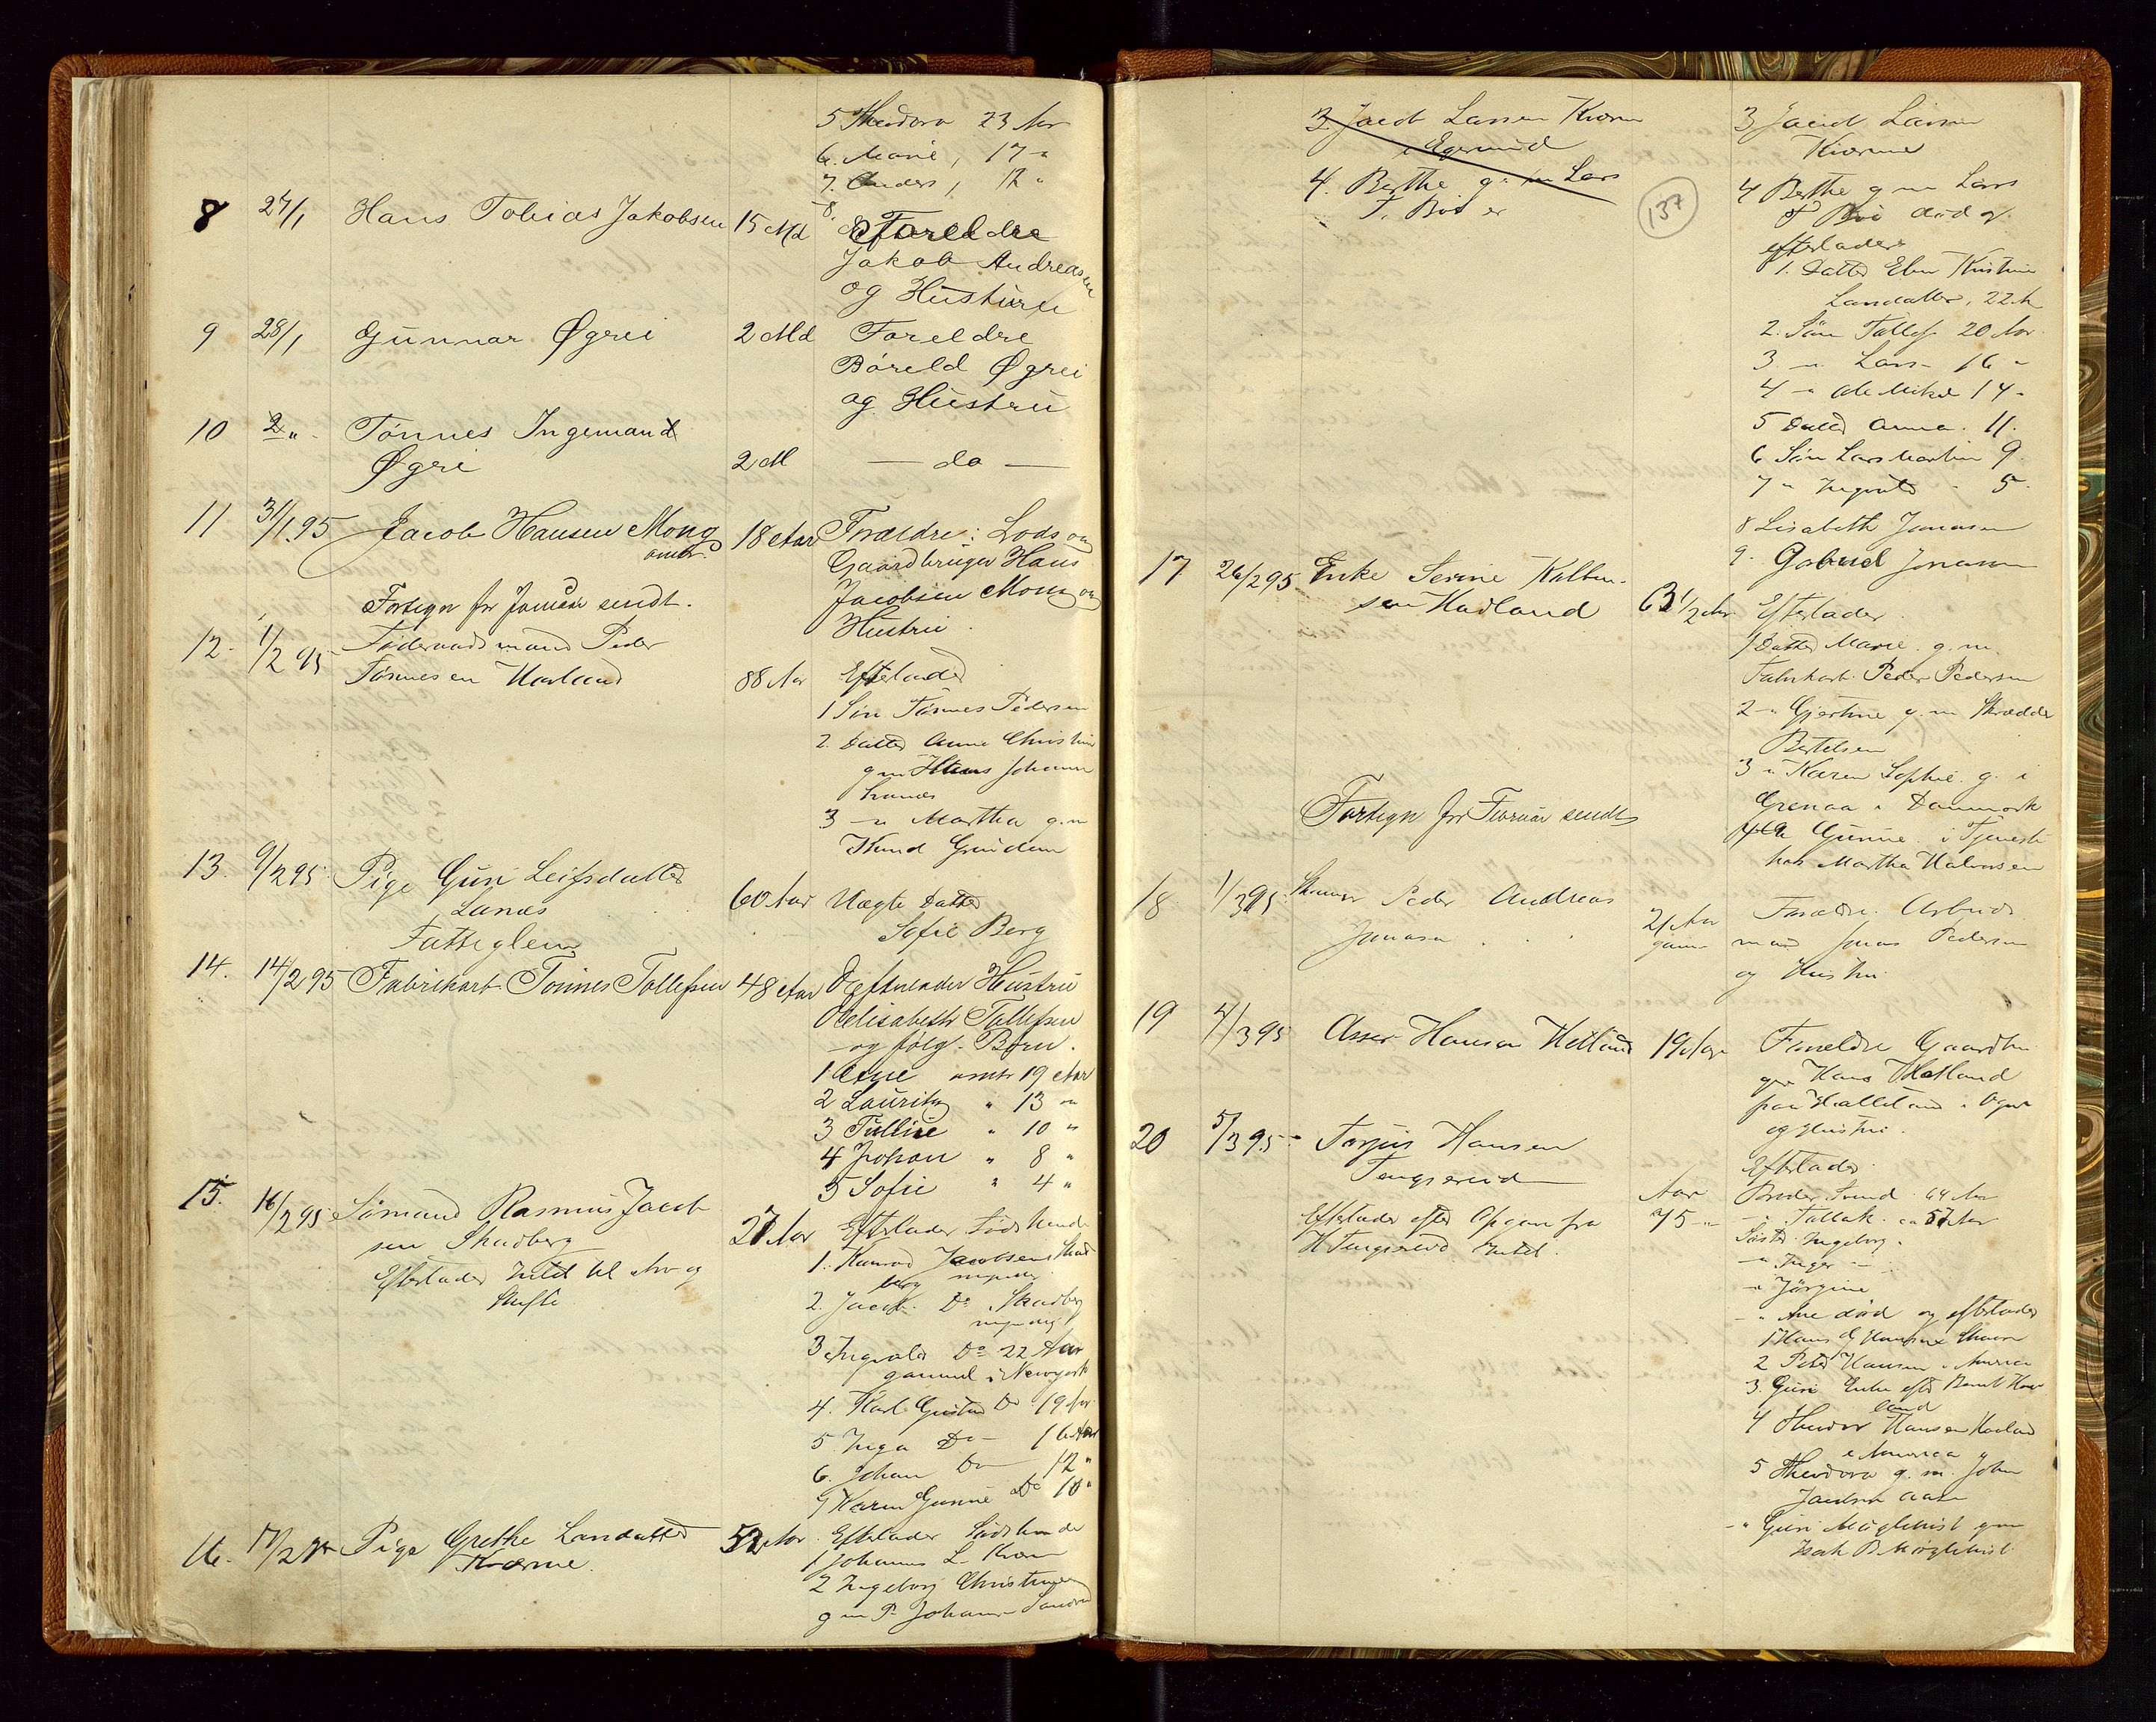 5 Theodora 23 Aar
6. Marie, 17 "
7. Anders, 12 "
8 27/1 Hans Tobias Jakobsen 15 Md 8. Foreldre
Jakob Andreasen
og Hustru
9 28/1 Gunnar Øgrei 2 Md Foreldre
Båreld Øgrei
og Hustru
10 2 " Tönnes Ingemand
Øgrei 2 M — do —
11 31/1 95 Jacob Hansen Mong
omtr. 18 Aar Forældre: Lods og
Gaardbruger Hans
Jacobsen Mong og
Hustru.
Fortegn for Januar sendt.
12. 1/2 95 Föderaadsmand Peder
Tönnesen Havland 88 Aar Efterlader
1 Sön Tönnes Pedersen
2. Datter Anne Christine
g m Hans Johann
3 " Martha g.m
Knud
13. 9/2 95 Pige Guri Leifsdatter
Lanæs
Fattiglem 60 Aar Uægte Datter
Sofie Berg
14. 14/2 95 Fabrikarb. Tönnes Tollefsen 48 Aar Efterlader Hustru
Elisabeth Tollefsen
og fölg. Börn.
1 Arne omtr 19 Aar
2 Lauritz " 13 "
3 Tilline " 10 "
4 Johan " 8 "
5 Sofie " 4 "
15. 16/2 95 Sömand Rasmus Jacob
sen Skadberg 27 Aar Efterlader Södskende
Efterlader Intet til Arv og
Skifte
1. Konrad Jacobsen Skad
berg myndig
2. Jacob Do Skadberg
myndig
3 Ingvald Do 22 Aar
gammel i Newyork
4. Karl Gustav Do 19 Aar
5 Inga Do 16 Aar
6. Johan Do 12 "
7 Karen Gunne Do 10 "
16. 17/2 95 Pige Grethe Larsdatter
Kværne. 52 Aar Efterlader Södskende
1 Johannes L. Kværne
2 Ingeborg Christine
g m P. Johans
3. Jacob Larsen Kværn
i Egersund
4. Berthe g. m Lars
T. Böe er
137
3 Jacob Larsen
Kværne
4 Berthe g m Lars
T Böe död og
efterlader
1. Datter Elen Kristine
Larsdatter, 22 A
2. Sön Tollef 20 Aar
3 " Lars 16 "
4 " Ole Mikal 14 "
5 Datter Anna 11.
6 Sön Lars Martin 9
7 " Ingvald 5
8 Lisabeth Jonasen
9. Gabriel Jonasen
17 26/2 95 Enke Serine Kolben-
sen Hadland 63 1/2 Aar Efterlader
1 Datter Marie g. m.
Fabrikarb. Peder Pedersen
2 " Gjertine g. m Skrædder
Bertelsen
3 " Karen Sophie g. i
Grenaa i Danmark
4 " Gunne i Tjeneste
hos Martha Halvorsen
Fortegn for Februar sendt
18 1/3 95 Peder Andreas
Jonasen 21 Aar
gam Forældre Arbeids
mand Jonas Pedersen
og Hustru
19 4/3 95 Asser Hansen Hetland 19 Aar Foreldre Gaardbru
ger Hans Hetland
paa i Ogne
og Hustru.
20 5/3 95 Torjus Hansen
Tengsereid Aar
75 " Efterlader
Efterlader efter Opgave fra
H Tengsereid Intet.
Broder Svend 64 Aar
" Tollak ca 57 Aar
Söster Ingeborg
" Inger
" Jörgine
" Ane död og efterlader
1 Hans
2 Peder Hansen i Amerika
3. Guri Enke efter Bernt Hav
land
4 Theodor Hansen Havland
i Amerika
5 Theodora g. m. John
Jacobsen Aase
" Guri Möglehüst gm
Isak B. Möglehüst.